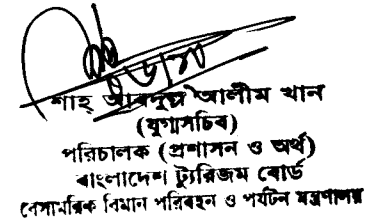 শাহ্ আবদুল্লা আলীম খান
(যুগ্মসচিব)
পরিচালক (প্রশাসন ও অর্থ)
বাংলাদেশ ট্যুরিজম বোর্ড
বেসামরিক বিমান পরিবহন ও পর্যটন মন্ত্রণালয়